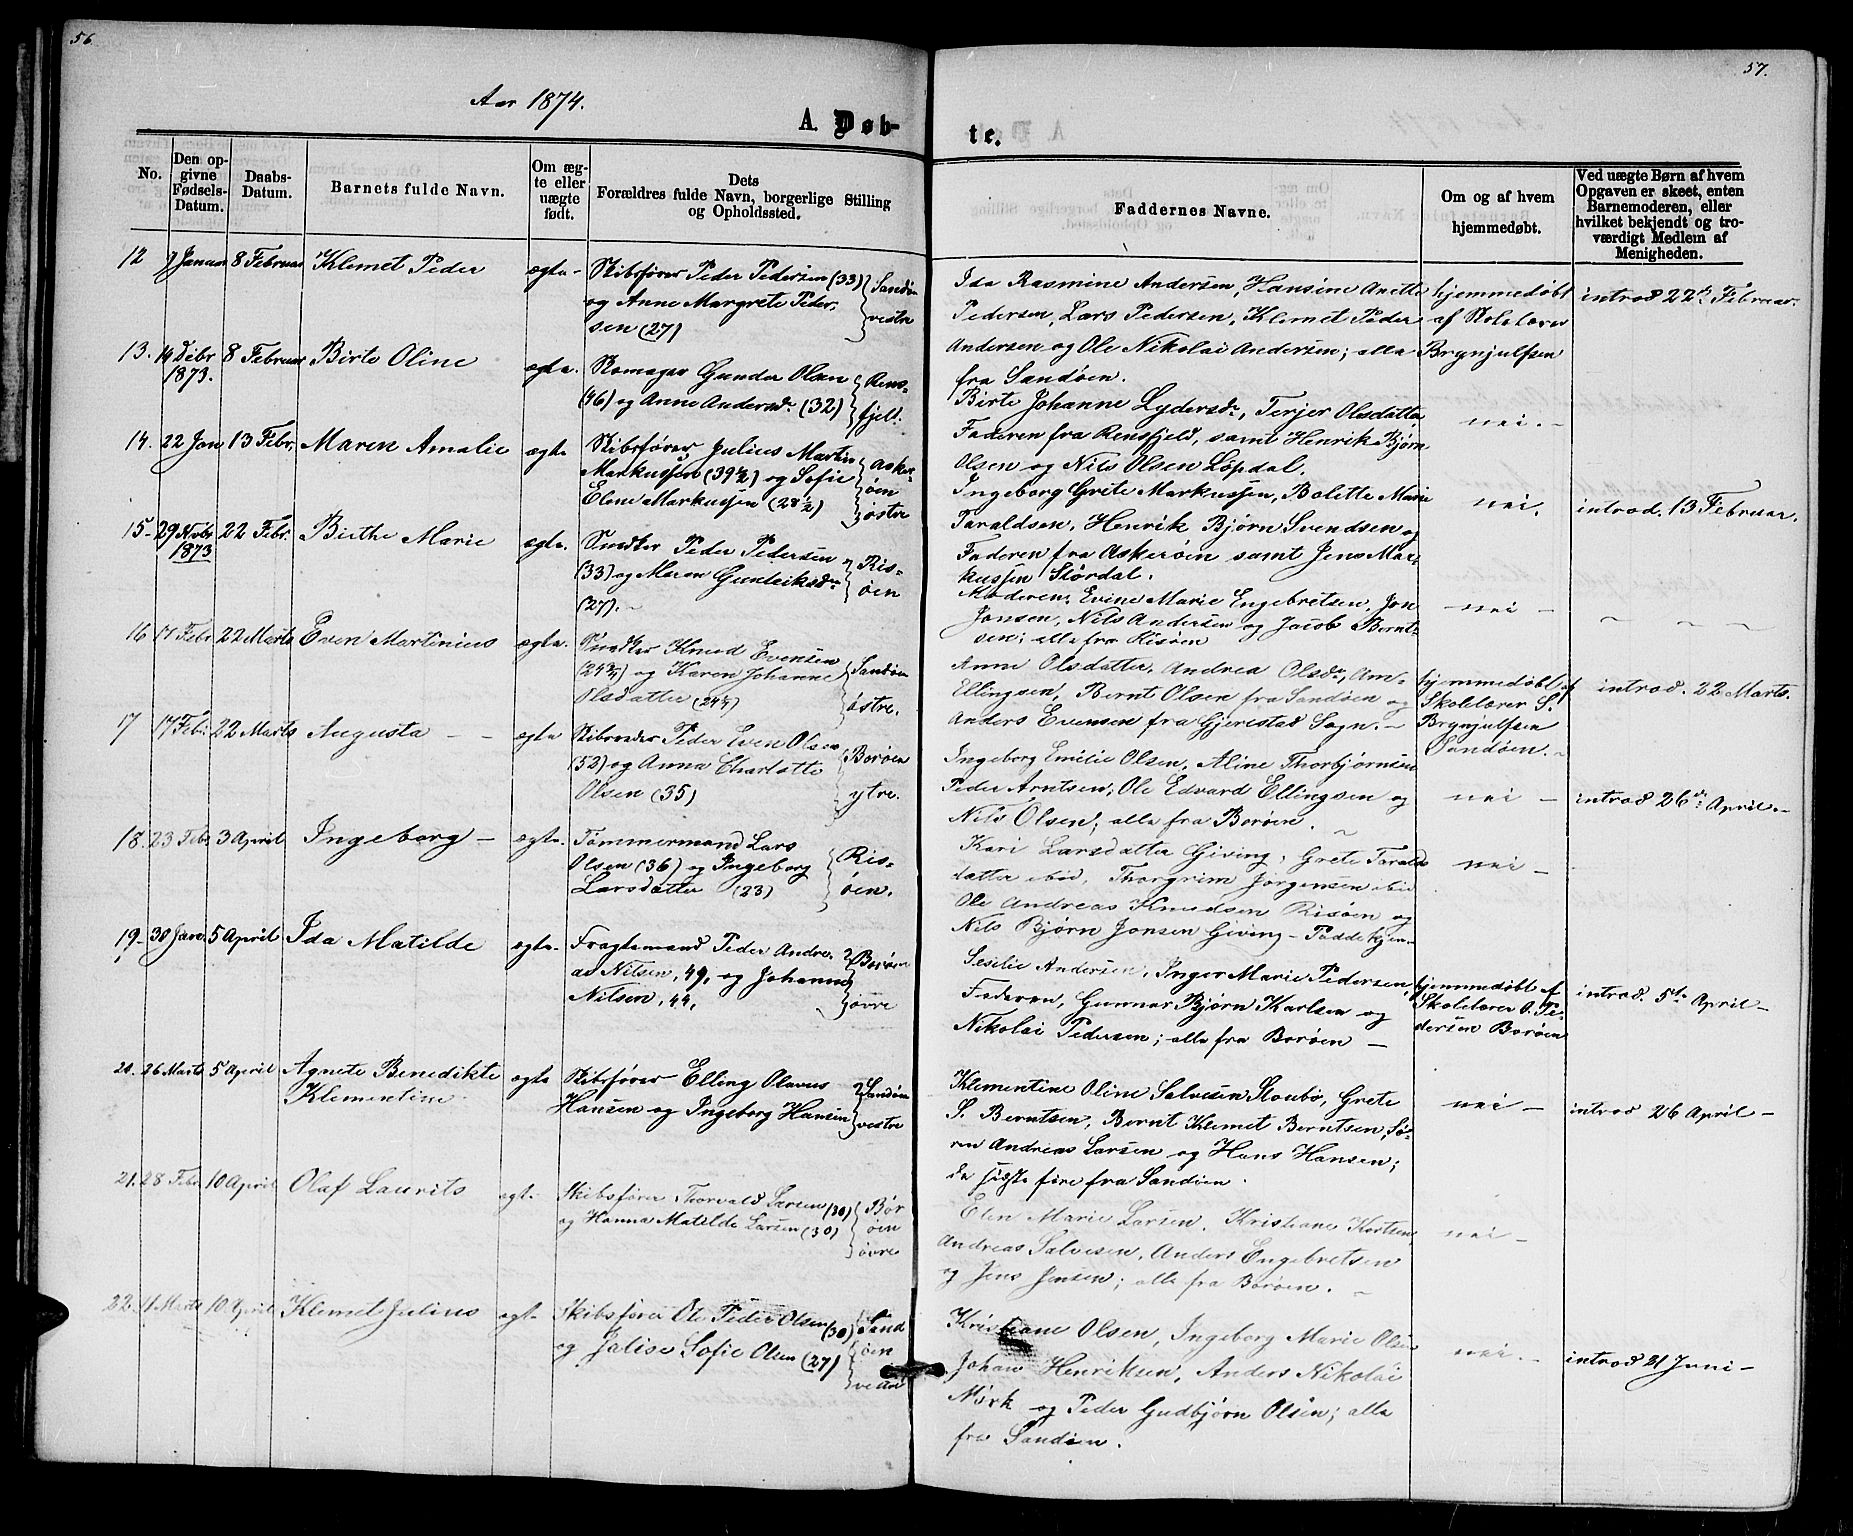 56
57.
Aar 1874.
A. Døb-
te.
No.
Den op-
givne
Fødsels-
Datum.
Daabs-
Datum.
Barnets fulde Navn.
Om æg-
te eller
uægte
født.
Dets
Forældres fulde Navn, borgerlige Stilling
og Opholdssted.
Faddernes Navne.
Om og af hvem
hjemmedøbt.
Ved uægte Børn af hvem
Opgaven er skeet, enten
Barnemoderen, eller
hvilket bekjendt og tro-
værdigt Medlem af
Menigheden.
12 7 Januar 8 Februar Klemet Peder ægte
Skibsfører Peder Pedersen (33)
og Anne Margrete Peder-
sen (27)
Sandøen
vestre
Ida Rasmine Andersen, Hansine Anette
Pedersen, Lars Pedersen, Klemet Peder
Andersen og Ole Nikolai Andersen; alle
fra Sandøen.
hjemmedøbt
af Skolelærer
Brynjulfsen
introd 22de Februar.
13. 14 Debr
1873.
8 Februar Birte Oline ægte.
Skomager Gunder Olsen
(46) og Anne Andersdr. (32)
Rens-
fjeld.
Birte Johanne Lydersdr, Terjer Olsdatter
Faderen fra Rensfjeld, samt Henrik Bjørn
Olsen og Nils Olsen Løpdal.
nei.
14. 22 Jan 13 Febr. Maren Amalie ægte
Skibsfører Julius Martin
Markussen (39½) og Sofie
Elene Markussen (28½)
Asker-
øen
østre
Ingeborg Grete Markussen, Bolette Marie
Taraldsen, Henrik Bjørn Svendsen og
Faderen fra Askerøen samt Jens Mar-
kussen Størdal.
nei.
introd. 13 Februar.
15. 29 Novbr
1873
22 Febr. Birthe Marie ægte.
Snedker Peder Pedersen
(33) og Maren Gunleiksdr
(27).
Ris-
øen
Moderen, Evine Marie Engebretsen, Jon
Jonsen, Nils Andersen og Jacob Bernt-
sen; alle fra Risøen
nei
16 17 Febr 22 Marts Even Martinius ægte.
Snedker Knud Evensen
og Karen Johanne
Olsdatter
Sandøen
østre.
Anne Olsdatter, Andrea Olsdr, Am-
Ellingsen, Bernt Olsen fra Sandøen og
Anders Evensen fra Gjerestad Sogn.
hjemmedøbt af
Skolelærer S.
Brynjulfsen
Sandøen.
introd. 22 Marts.
17 17 Febr. 22 Marts Augusta ægte
Peder Even Olsen
(52) og Anna Charlotte
Olsen (35)
Borøen
ytre.
Ingeborg Emilie Olsen, Aline Thorbjørnsen
Peder Arntsen, Ole Edvard Ellingsen og
Nils Olsen; alle fra Borøen.
nei
introd 26de April.
18. 23 Febr 3 April Ingeborg ægte.
Tømmermand Lars
Olsen (36) og Ingeborg
Larsdatter (23)
Ris-
øen.
Kari Larsdatter Giving, Grete Tarald-
datter ibid, Thorgrim Jørgensen ibid
Ole Andreas Knudsen Risøen og
Nils Bjørn Jonsen Giving
nei
19. 30 Jan. 5 April Ida Matilde ægte.
Fragtemand Peder Andre-
as Nilsen, 49, og Johanne
Nilsen, 44,
Borøen
øvre
Sesilie Andersen, Inger Marie Pedersen,
Faderen, Gunnar Bjørn Karlsen og
Nikolai Pedersen; alle fra Borøen
hjemmedøbt af
Skolelærer O. Pe-
dersen Borøen
introd. 5te April
20. 26 Marts 5 April Agnete Benedikte
Klementine
ægte
Skibsfører Elling Olavus
Hansen og Ingeborg Hansen
Sandøen
vestre
Klementine Oline Salvesen Staubø, Grete
S. Berntsen, Bernt Klemet Berntsen, Sø-
ren Andreas Larsen og Hans Hansen;
de sidste fire fra Sandøen.
nei
introd 26 April
21. 28 Febr 10 April Olaf Laurits ægt.
Skibsfører Thorvald Larsen (30)
og Hanna Matilde Larsen (30)
Bor
øen
øvre
Elen Marie Larsen, Kristiane Karlsen,
Andreas Salvesen, Anders Engebretsen
og Jens Jensen; alle fra Borøen.
nei
22. 11 Marts 10 April Klemet Julius ægt.
Skibsfører Ole Peder Olsen (30)
og Jalise Sofie Olsen (27)
Sand
øen
Kristiane Olsen, Ingeborg Marie Olsen
Johan Henriksen, Anders Nikolai
Mørk og Peder Gudbjørn Olsen; alle
fra Sandøen.
nei.
introd 21 Juni